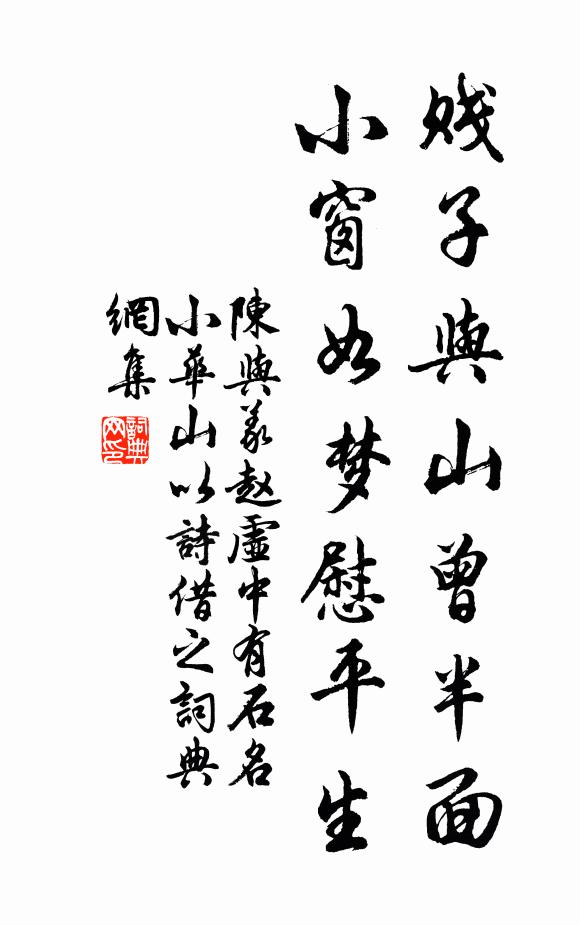 贱子與山曾半面
小窗如梦慰平生
陳與義赵虛中有石名
小華山以詩借之詞典
網集
詞典
网印